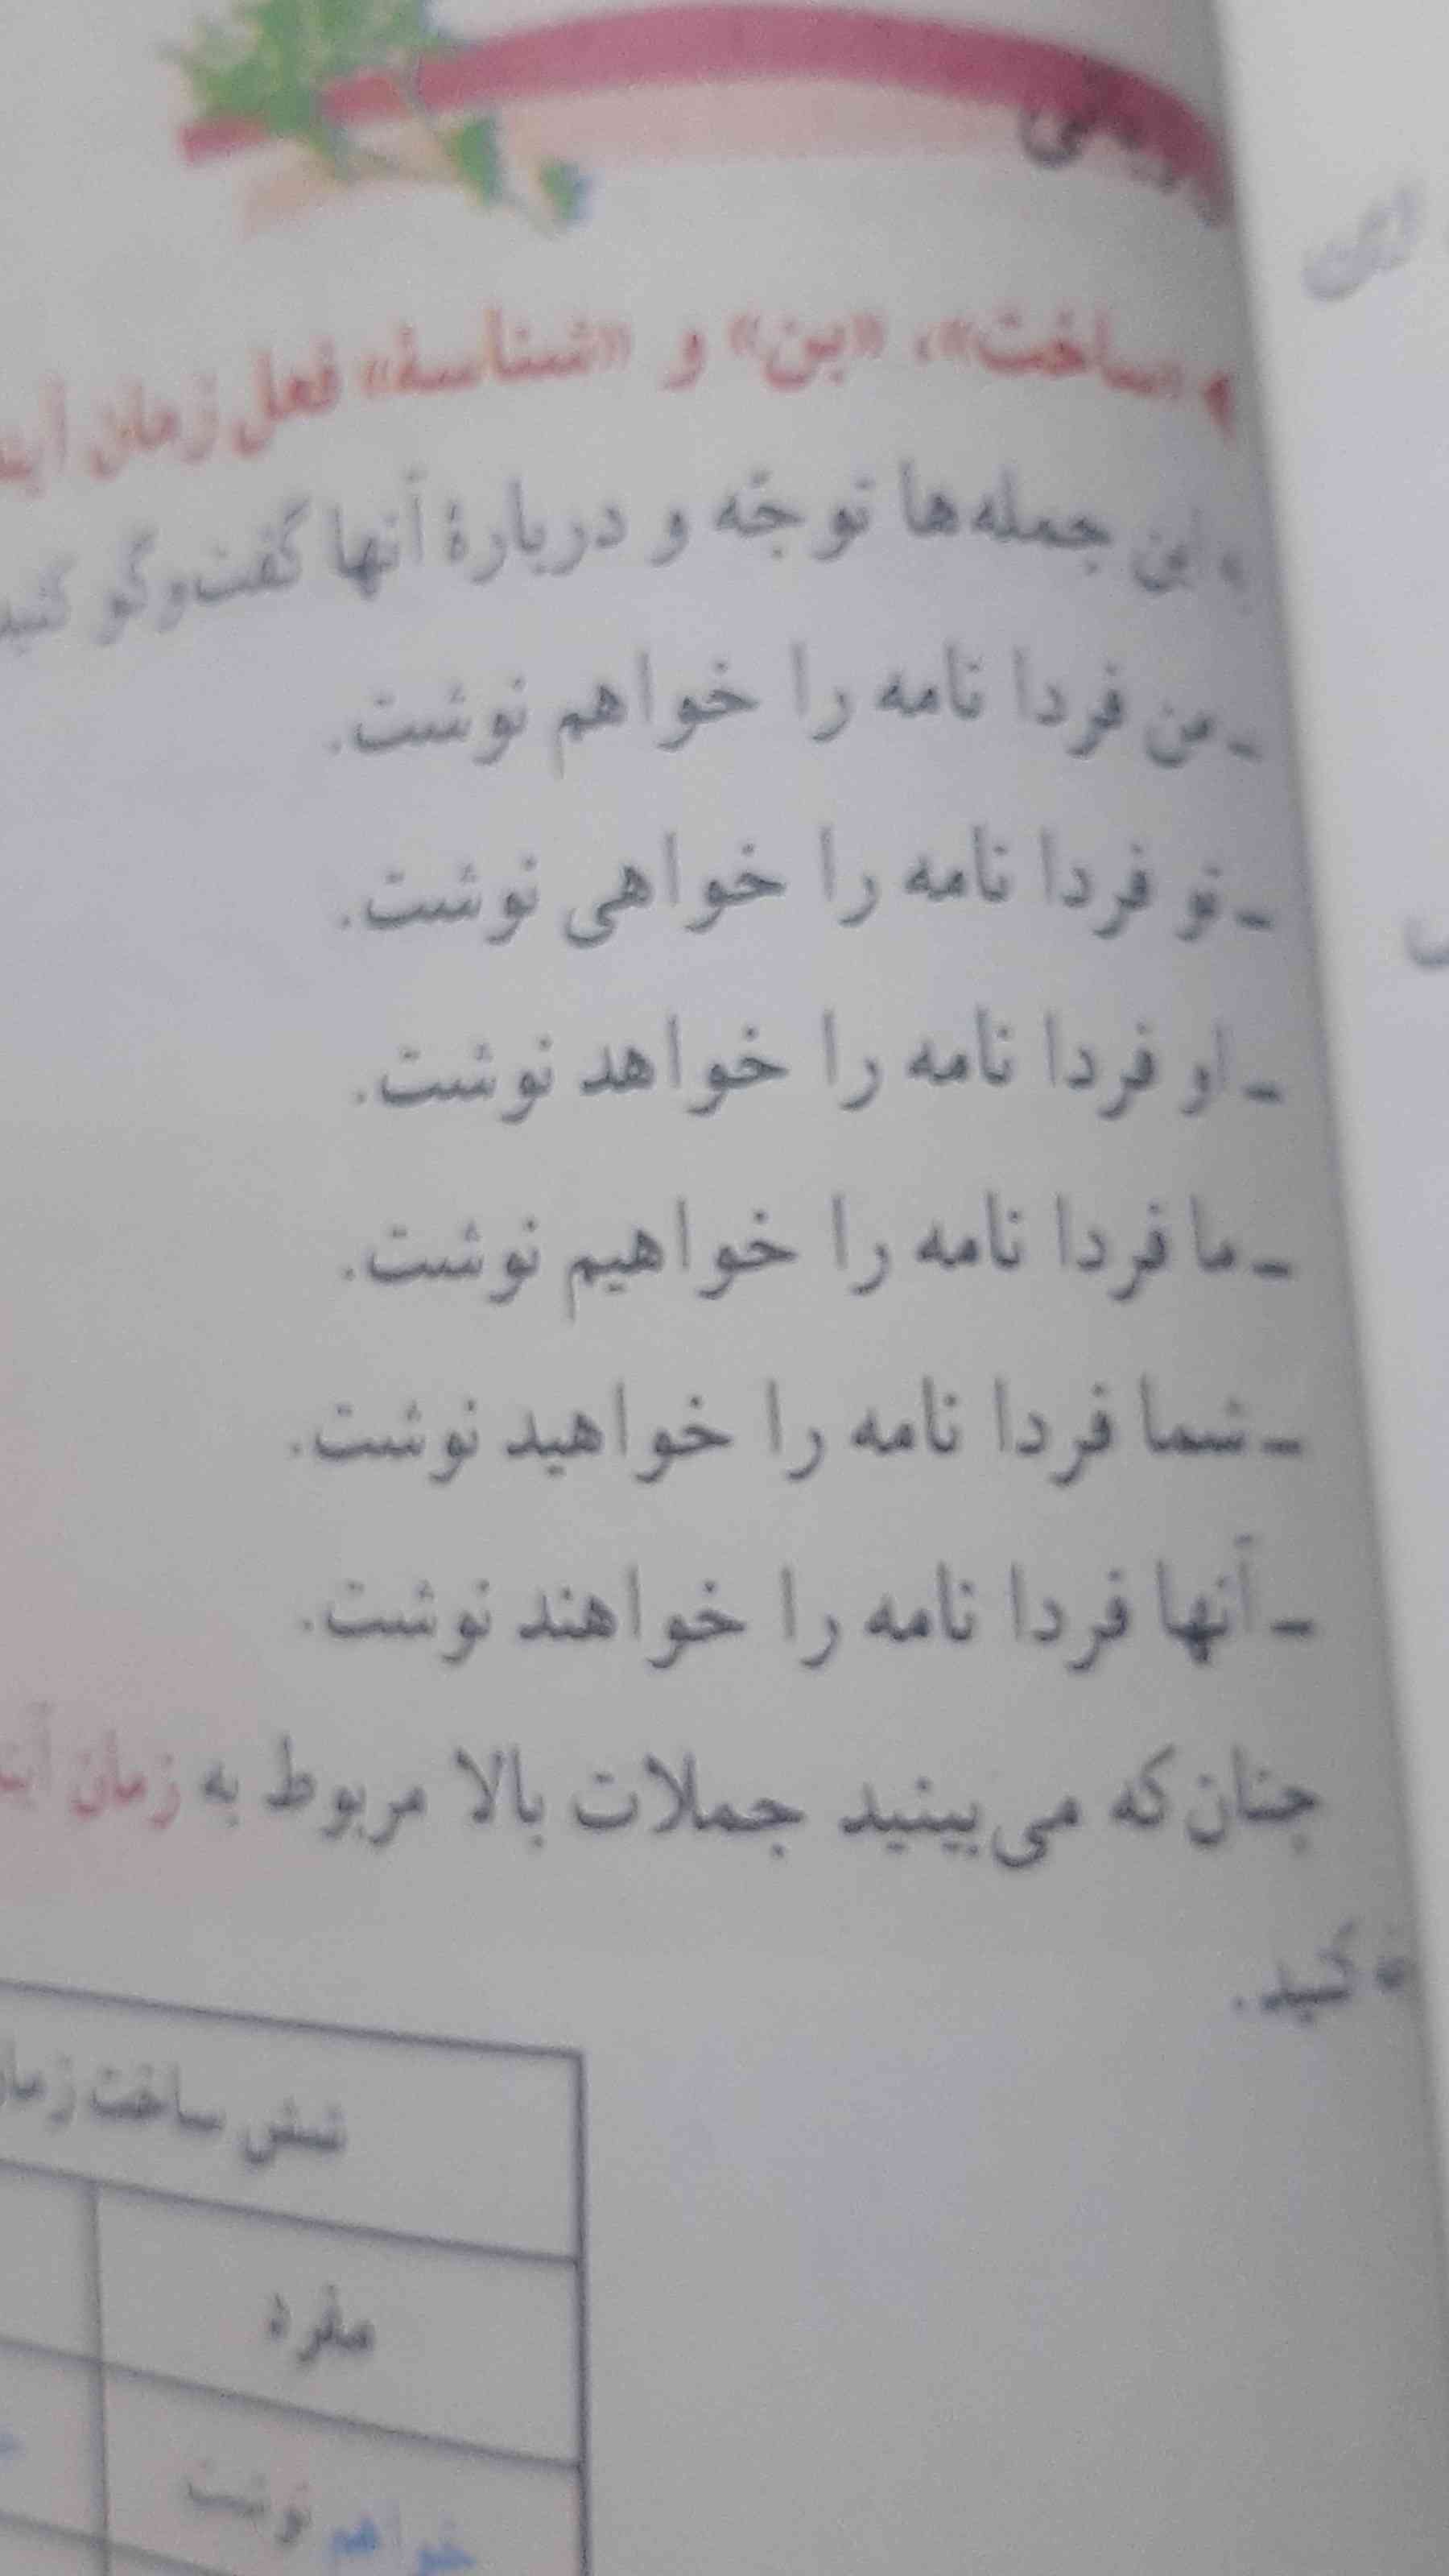 «ساخت»، «بن» و «شناسهٔ» فعل زمان
این جمله‌ها توجّه و دربارهٔ آنها گفت‌وگو کنید
ـ من فردا نامه را خواهم نوشت.
ـ تو فردا نامه را خواهی نوشت.
ـ او فردا نامه را خواهد نوشت.
ـ ما فردا نامه را خواهیم نوشت.
ـ شما فردا نامه را خواهید نوشت.
ـ آنها فردا نامه را خواهند نوشت.
چنان‌که می‌بینید جملات بالا مربوط به زمان
کنید.
شش ساخت
مفرد
خواهم نوشت